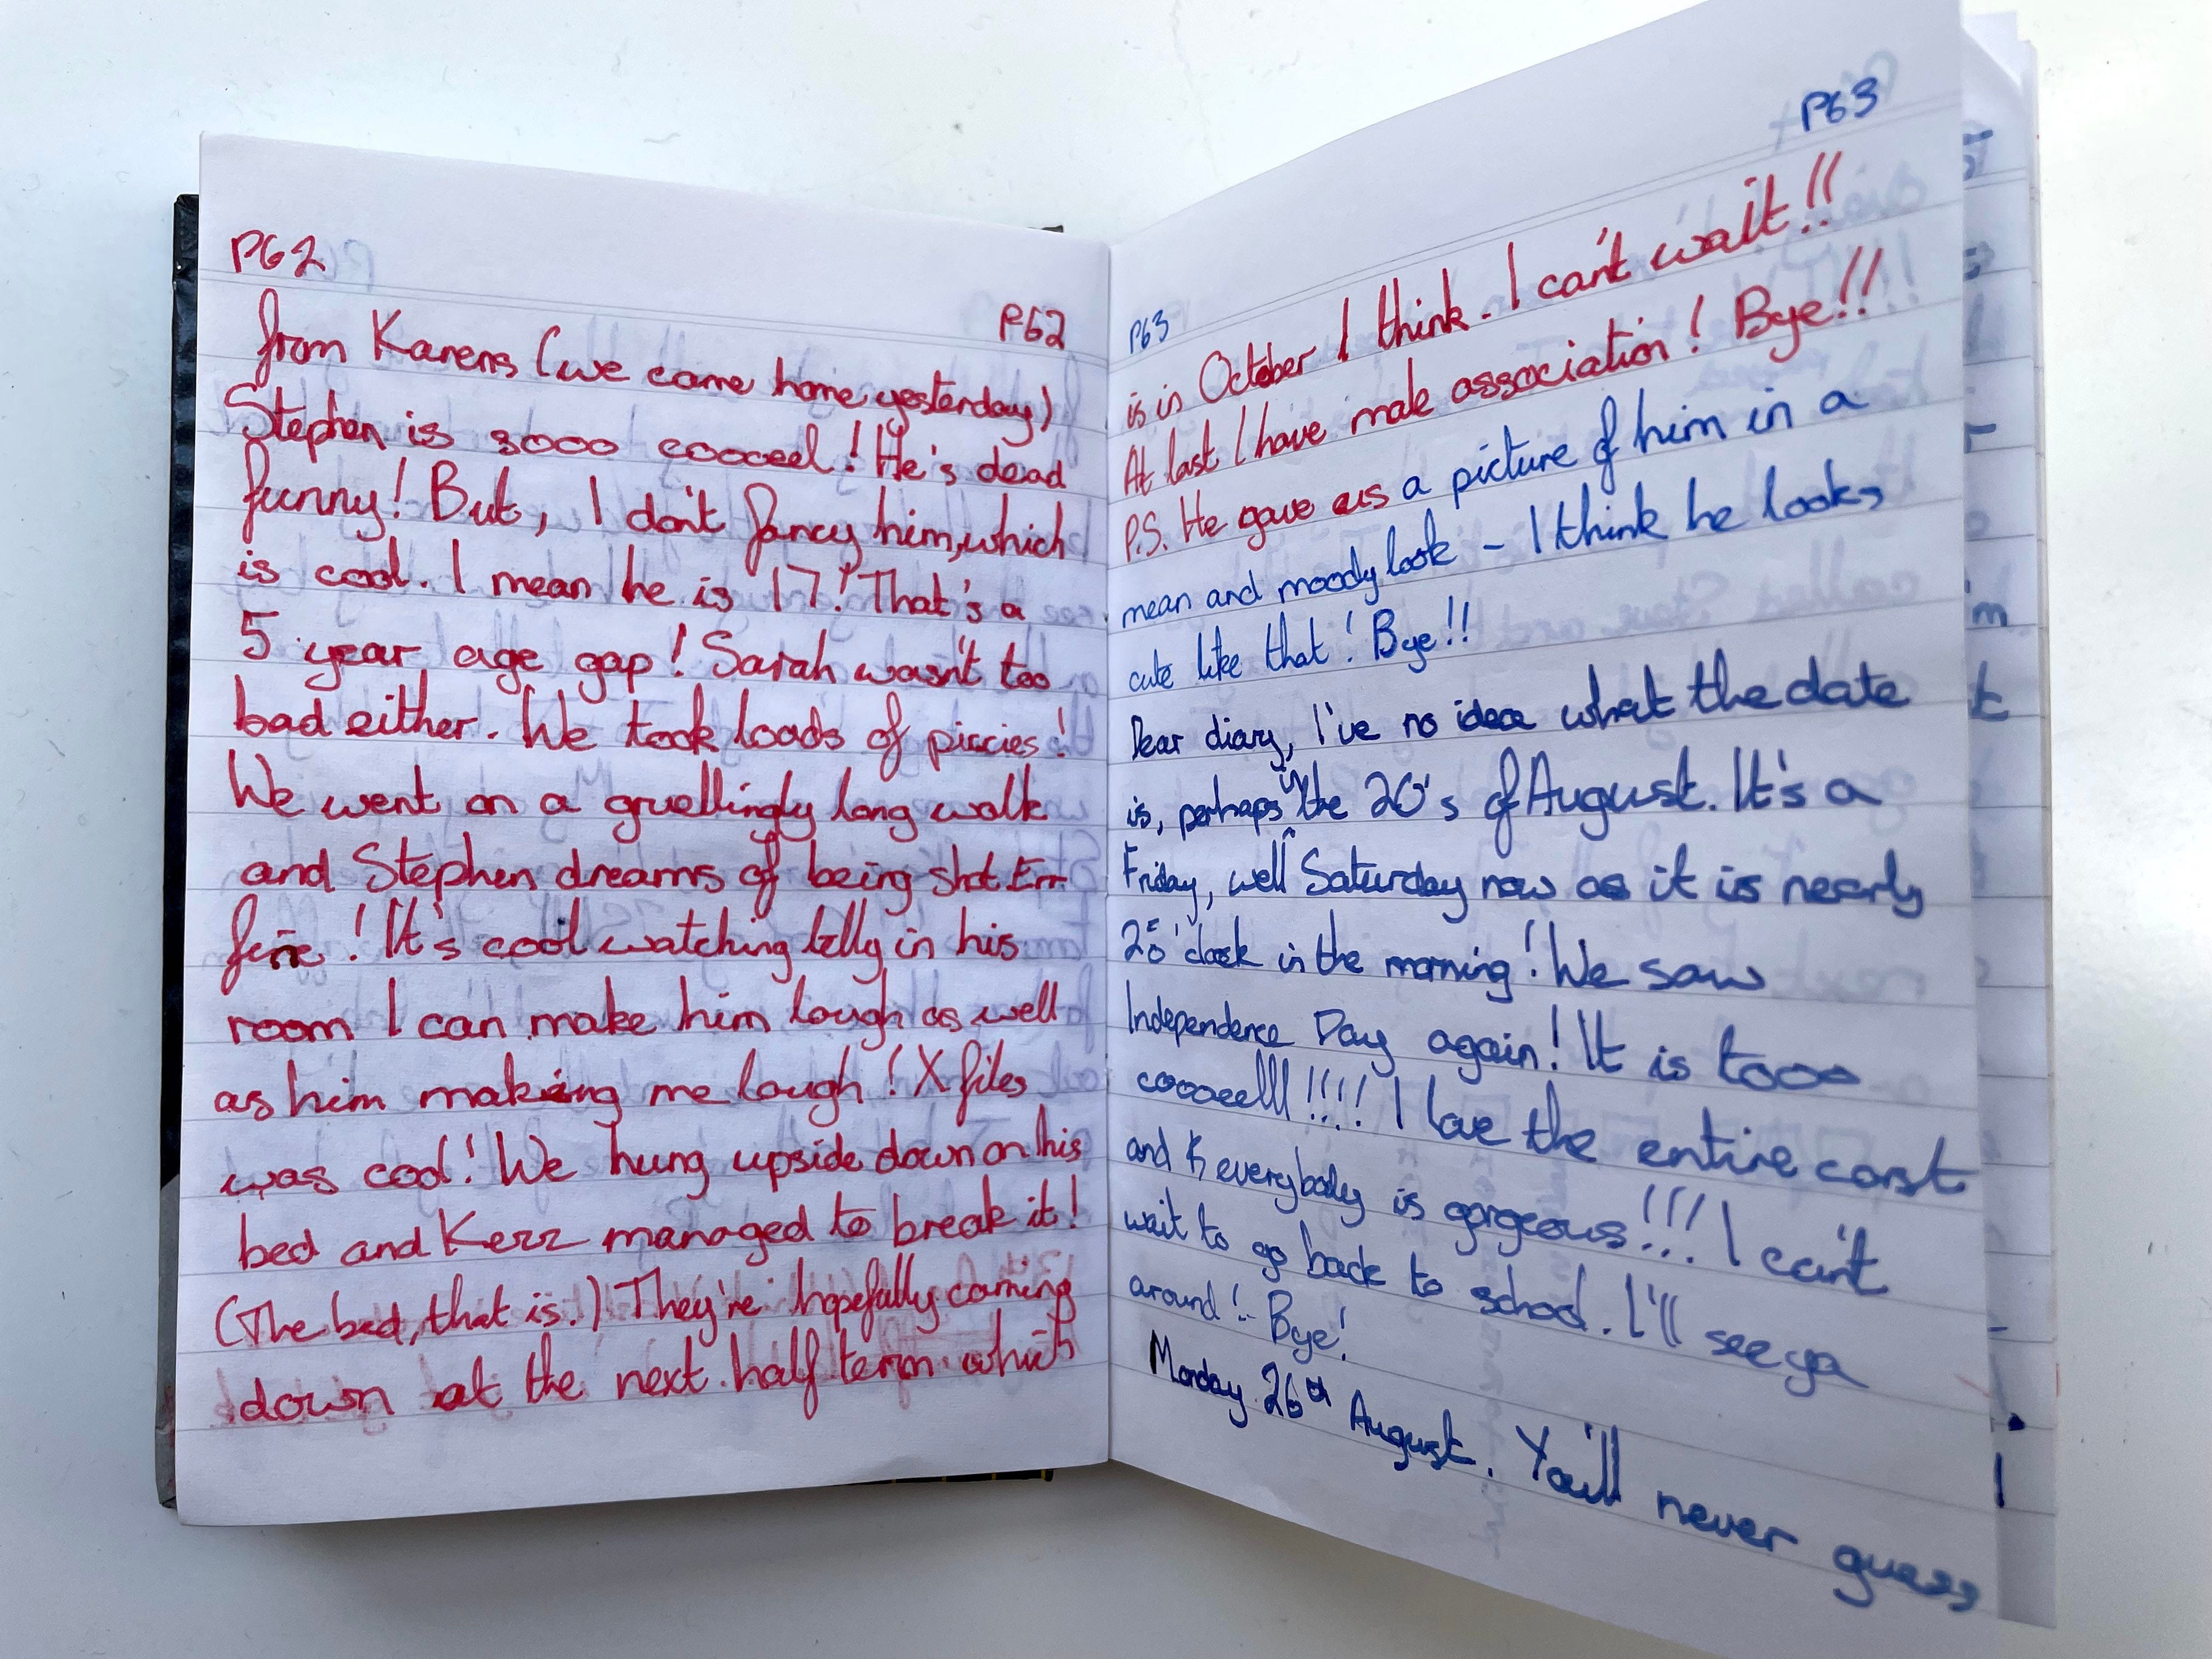 P62
P62
from Karens (we came home yesterday)
Stephen is sooo coooeel! He's dead
funny! But, I don't fancy him, which
is cool. I mean he is 17! That's a
5 year age gap! Sarah wasn't too
bad either. We took loads of piccies!
We went on a gruellingly long walk
and Stephen dreams of being shot. Err
fine! It's cool watching telly in his
room I can make him laugh as well
as him making me laugh! X files
was cool! We hung upside down on his
bed and Kerz managed to break it!
(The bed, that is.) They're hopefully coming
down at the next half term which
P63
P63
is in October I think. I can't wait!!
At last I have male association! Bye!!
P.S. He gave us a picture of him in a
mean and moody look - I think he looks
cute like that! Bye!!
Dear diary, I've no idea what the date
is, perhaps in the 20's of August. It's a
Friday, well Saturday now as it is nearly
2 o'clock in the morning! We saw
Independence Day again! It is tooo
coooeelll!!!! I love the entire cast
and everybody is gorgeous!!! I can't
wait to go back to school. I'll see ya
around! Bye!
Monday 26th August. You'll never guess